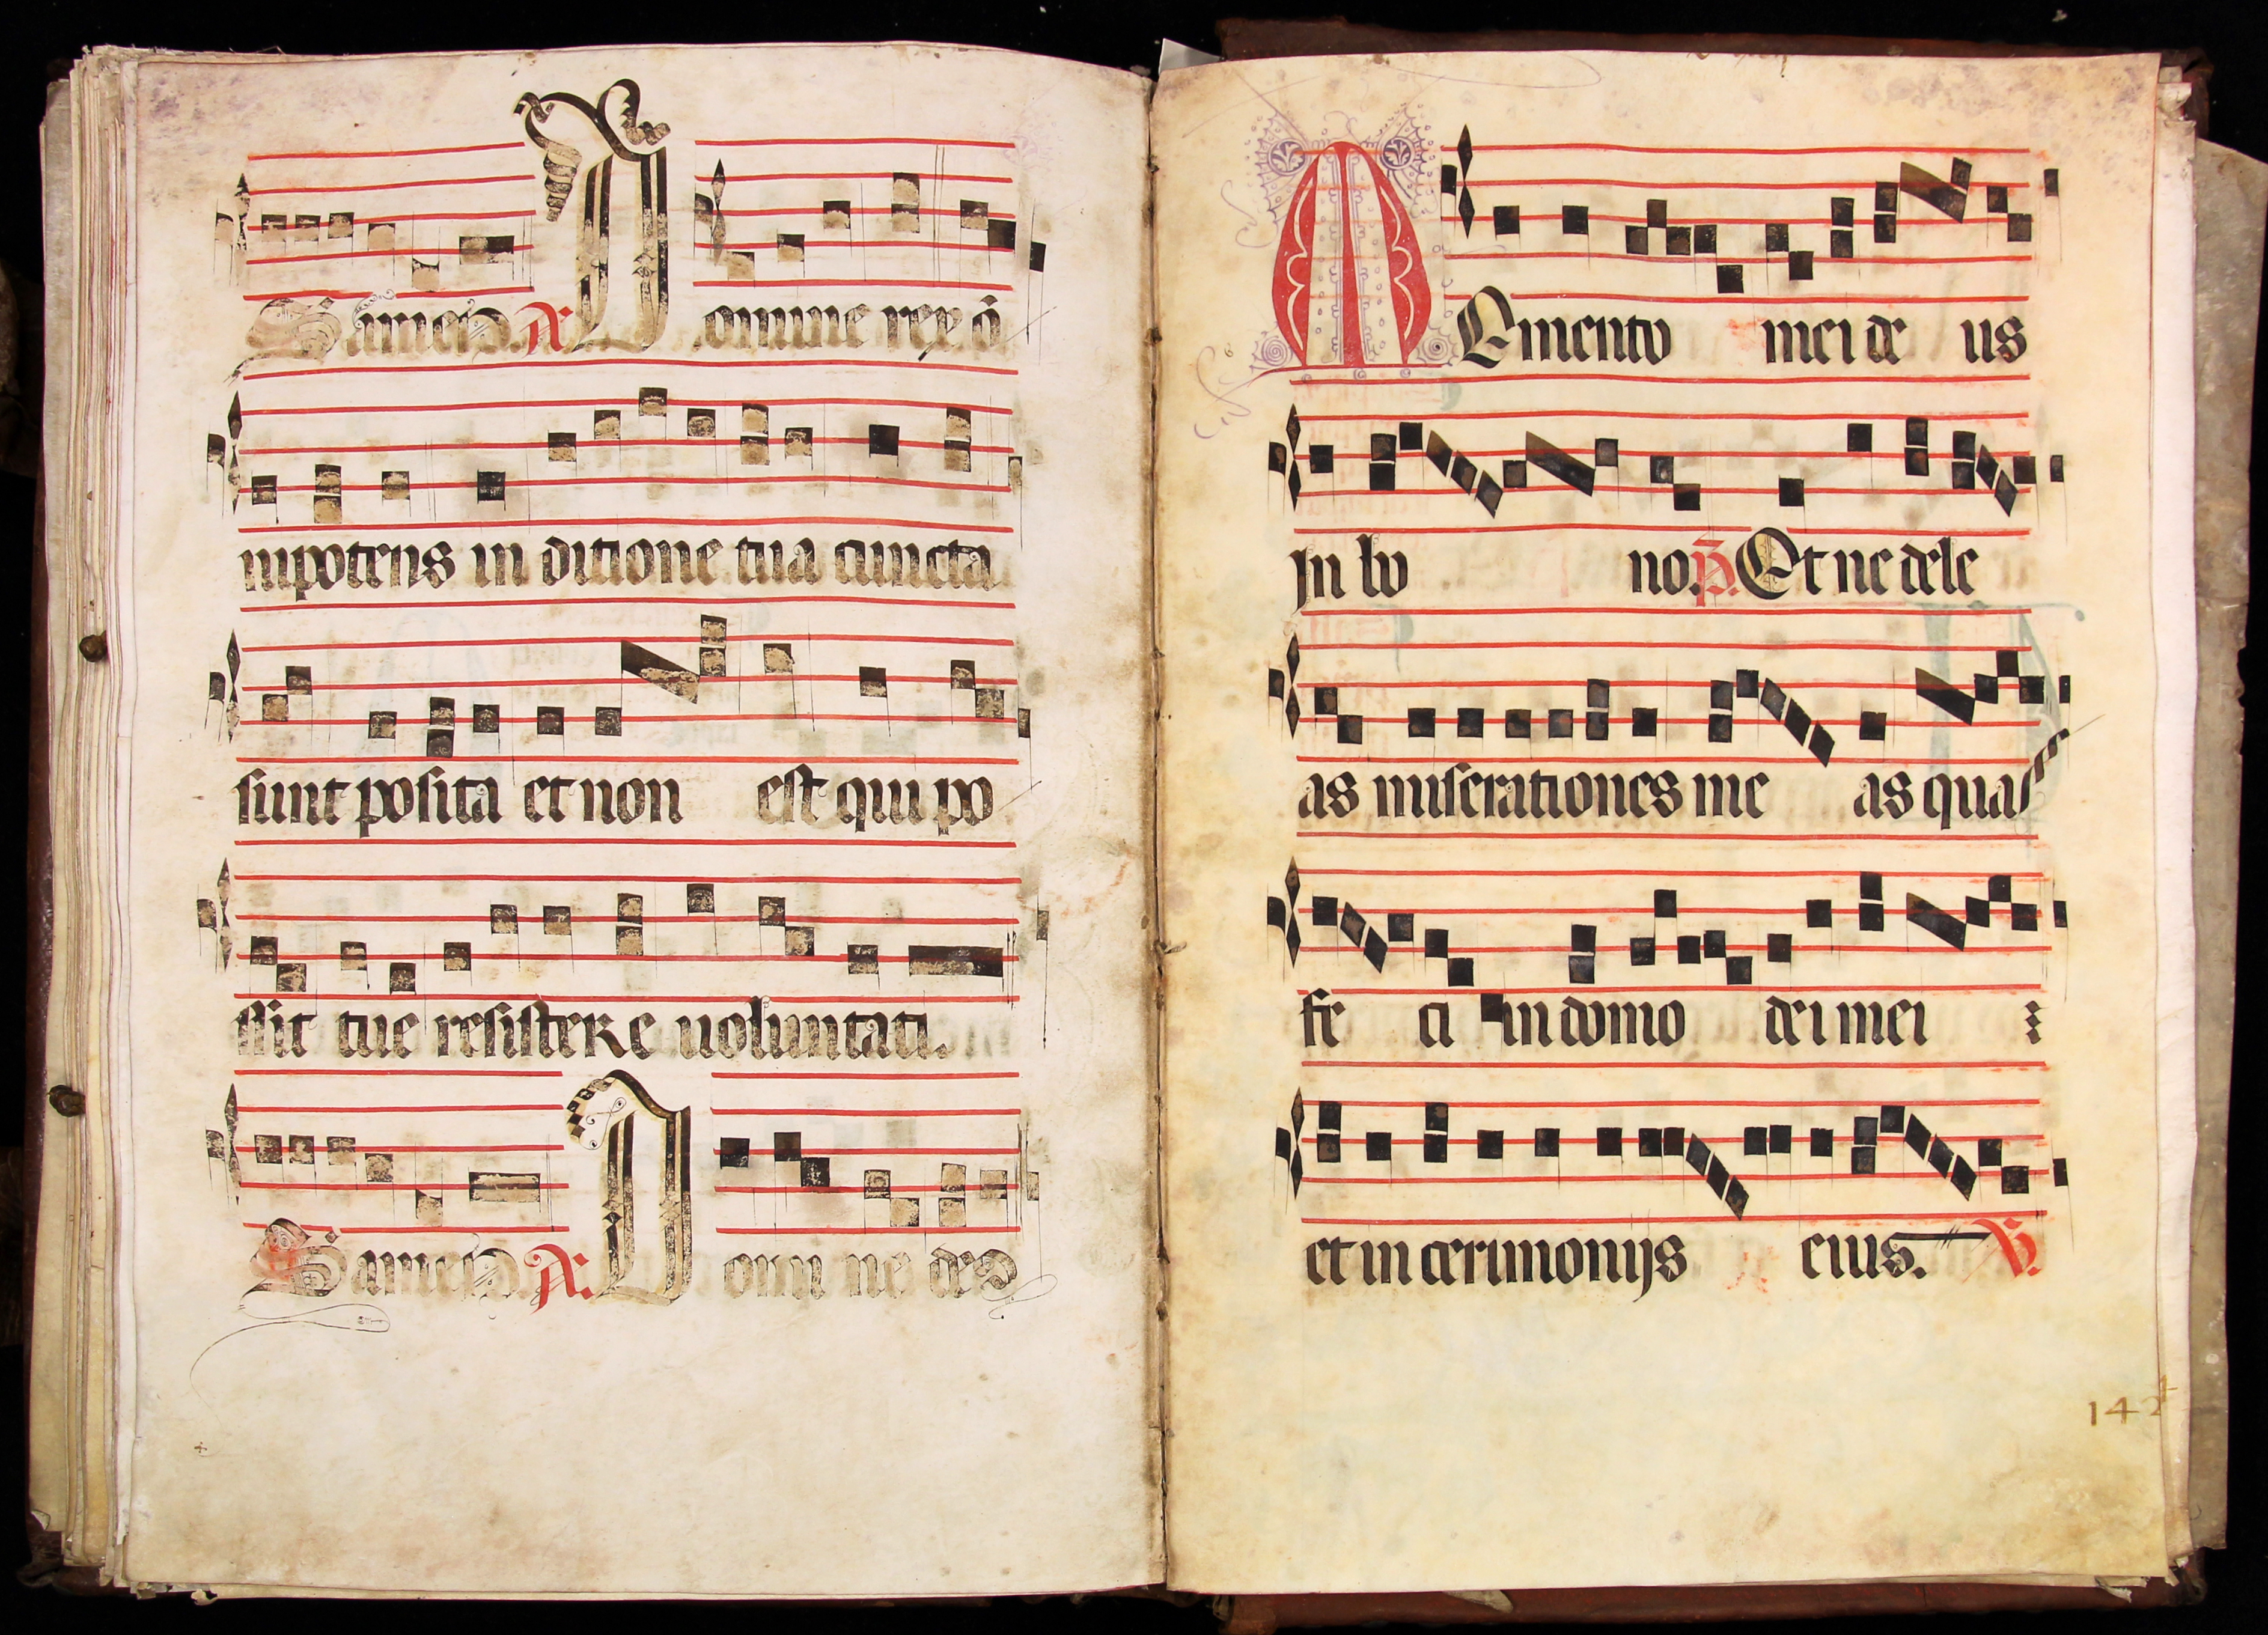 Samech. A. Domine rex õ
nipotens in ditione tua cuncta
sunt posita et non est qui po
ssit tue resistere uoluntati.
Samech. A. Domi ne de9
MEmento mei de us
in bo no. P. Et ne dele
as miserationes me as quas
fe ci in domo dei mei
et in cerimonijs eius. V.
142